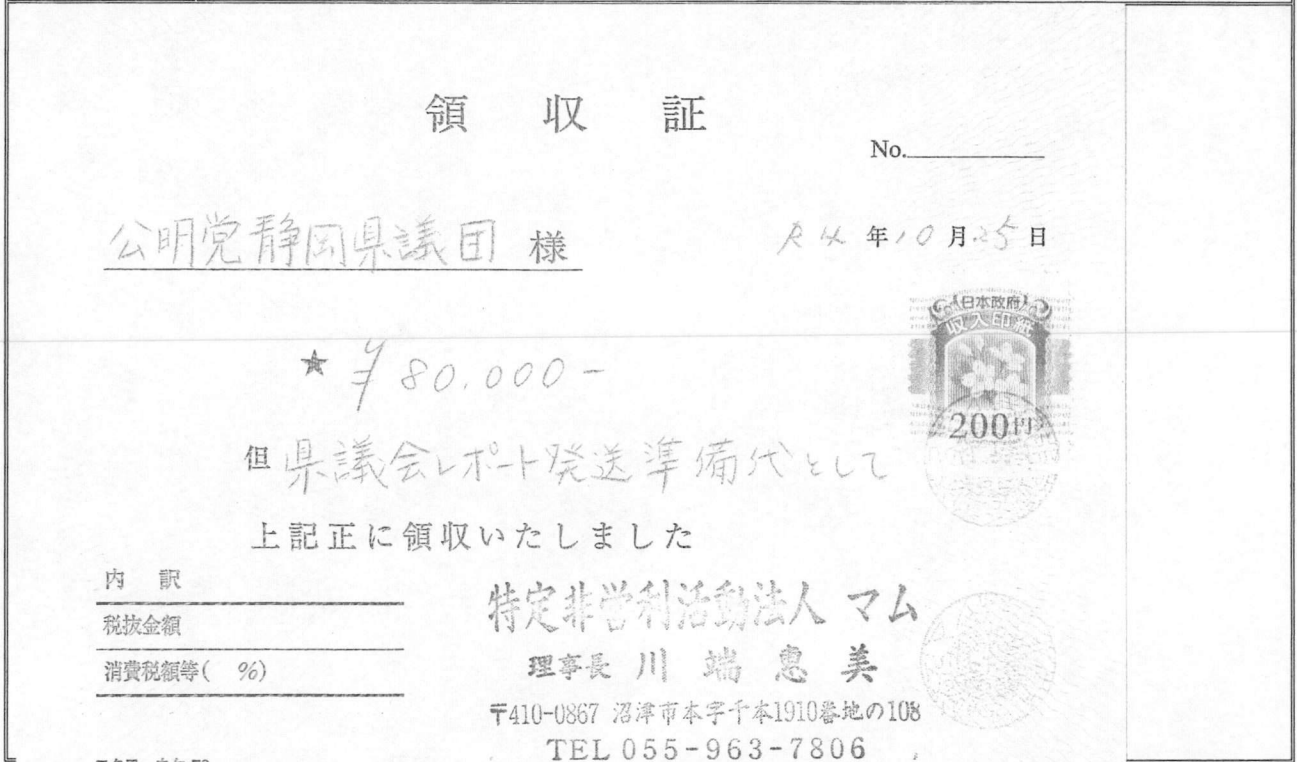 領収証
No.
公明党静岡県議団 様
R4年10月25日
日本政府
収入印紙
200円
★ ¥80.000-
但 県議会レポート発送準備代として
上記正に領収いたしました
内 訳
税抜金額
消費税額等( %)
特定非営利活動法人 マム
理事長 川端恵美
〒410-0867 沼津市本字千本1910番地の108
TEL 055-963-7806